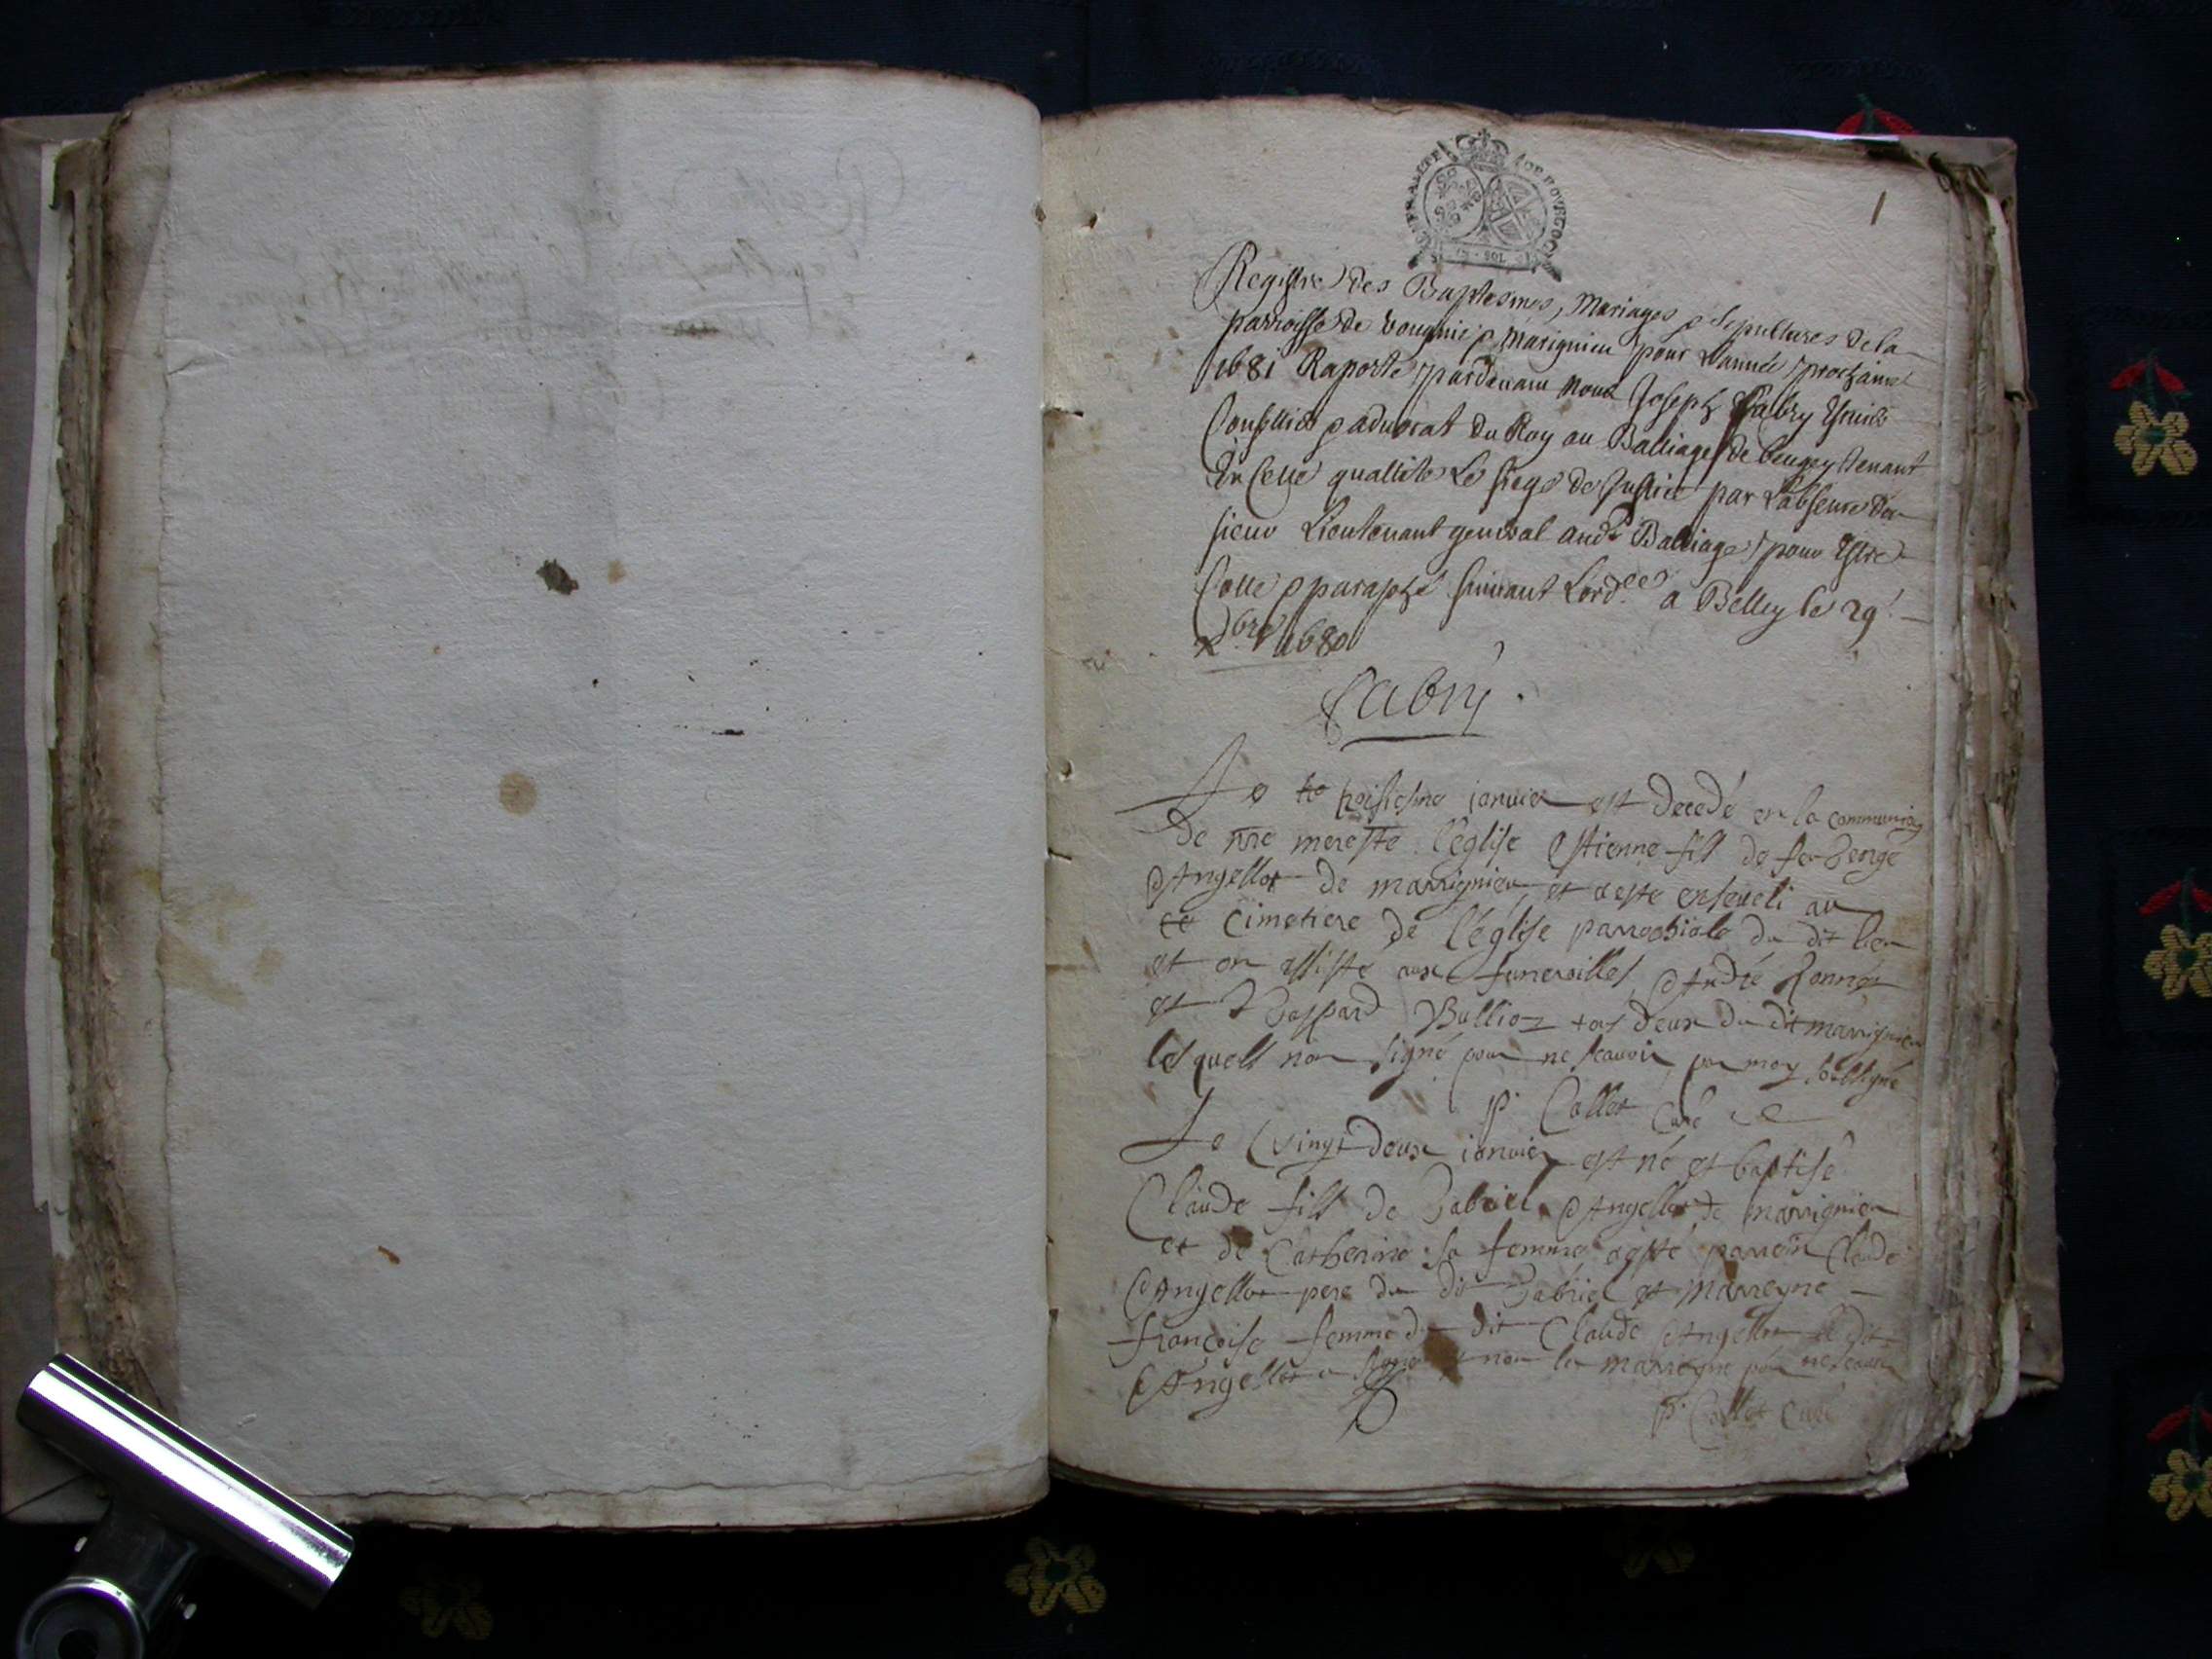 1
GENERALITE DE BOVRGOGNE
SOL
Registre des Baptesmes, Mariages & Sepultures de la
parroisse de vougnie & Marignieu pour L'année prochaine
1681 Raporté pardevant nous Joseph Fabry
Conseiller & advocat du Roy au Balliage de beugey tenant
En Celle quallité Le siege de Justice par L'absence du
sieur Lieutenant general aud.t Balliage pour Estre
Cotté & paraphé suivant Lord.ce a Belley le 29.
Xbre 1680
Fabry
Le tro troisiesme ianvier est decedé en la communion
de nre mere ste l'église Estienne fils de feu George
Angellot de marrignieu et a esté enseveli au
ce cimetiere de l'église parrochiale du dit lieu
et on assisté aux funerailles André
et Gaspard Bullioz tous deux du dit marrignieu
lesquels non signé pour ne scavoir par moy soubsigné
P. Collet Curé
Le vingt deux ianvier est né et baptisé
Claude fils de Gabriel Angellot de marrignieu
et de Catherine sa femme a esté parrein Claude
Angellot pere du dit Gabriel et Marreyne
françoise femme du dit Claude Angellot le dit
Angellot a signé et non la marreyne pour ne scavoir
P. Collet Curé